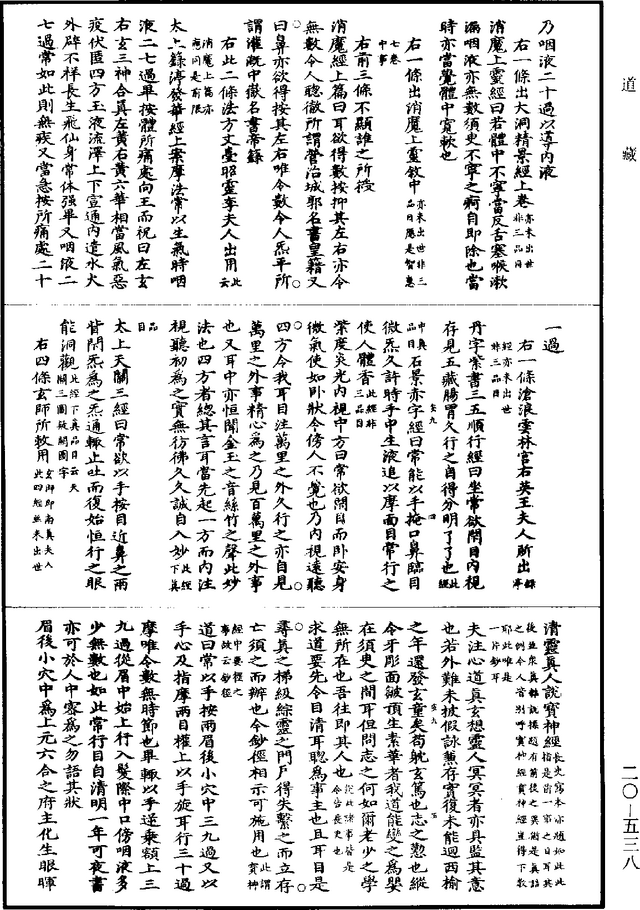 道藏
乃咽液二十過以導內液
右一條出大洞精景經上卷亦未出世非三品目
消魔上靈經曰若體中不寧當反舌塞喉漱
漏咽液亦無數須臾不寧之痾自即除也當
時亦當覺體中寬軟也
右一條出消魔上靈敘中亦未出世非三品目應是智慧七卷中事
右前三條不顯誰之所授
消魔經上篇曰耳欲得數按抑其左右亦令
無數令人聰徹所謂營治城郭名書皇籍又
曰鼻亦欲得按其左右唯令數令人炁平所
謂灌溉中嶽名書帝籙
右此二條法方丈臺昭靈李夫人出用此云消魔上篇亦應同是前限
太上籙渟發華經上案摩法常以生氣時咽
液二七過畢按體所痛處向王而祝曰左玄
右玄三神合真左黃右黃六華相當風氣惡
疫伏匿四方玉液流澤上下宣通內遣水火
外辟不祥長生飛仙身常休強畢又咽液二
七過常如此則無疾又當急按所痛處二十
一過
右一條滄浪雲林宮右英王夫人所出籙渟經亦未出世非三品目
丹字紫書三五順行經曰坐常欲閉目內視
存見五藏腸胃久行之自得分明了了也此經中真品目
石景赤字經曰常能以手掩口鼻臨目
微炁久許時手中生液追以摩面目常行之
使人體香此經非三品目
紫度炎光內視中方曰常欲閉目而卧安身
微氣使如卧狀令傍人不覺也乃內視遠聽
四方令我耳目注萬里之外久行之亦自見
萬里之外事精心為之乃見百萬里之外事
也又耳中亦恒聞金玉之音絲竹之聲此妙
法也四方者總其言耳當先起一方而內注
視聽初為之實無彷彿久久誠自入妙此經下真品目
太上天關三經曰常欲以手按目近鼻之兩
眥閉炁為之炁通輒止吐而復始恒行之眼
能洞觀此經下真品目云天關三圖啟關圖字
右四條玄師所敕用玄師即南真夫人此四經並未出世
清靈真人說寶神經
夫注心道真玄想靈人冥冥者亦具監其意
也若外難未披假詠兼存實復未能迴西榆
之年還發玄童矣苟躭玄篤也志之勤也縱
令牙彫面皺頂生素華者我道能變之為嬰
在須臾之間耳但問志之何如爾老少之學
無所在也吾往即其人也
求道要先令目清耳聰為事主也且耳目是
尋真之梯級綜靈之門戶得失繫之而立存
亡須之而辦也今鈔徑相示可施用也此謂寶神經中要徑之事故云鈔徑
道曰常以手按兩眉後小穴中三九過又以
手心及指摩兩目權上以手旋耳行三十過
摩唯令數無時節也畢輒以手逆乘額上三
九過從眉中始上行入髮際中口傍咽液多
少無數也如此常行目自清明一年可夜書
亦可於人中密為之勿語其狀
眉後小穴中為上元六合之府主化生眼暉
二〇—五三八